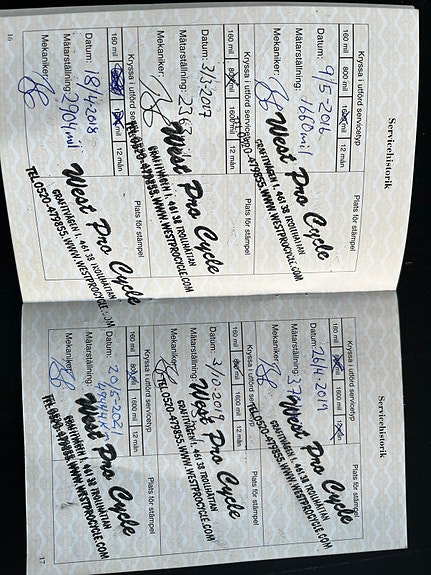 Servicehistorik
Kryssa i utförd servicetyp
Plats för stämpel
160 mil 800 mil 1600 mil 12 mån
Datum: 9/5-2016
Mätarställning: 1660 mil
Mekaniker:
West Pro Cycle
GRAFITVÄGEN 1, 461 38 TROLLHÄTTAN
TEL.0520-479855. WWW.WESTPROCYCLE.COM
Kryssa i utförd servicetyp
Plats för stämpel
160 mil 800 mil 1600 mil 12 mån
Datum: 3/5-2017
Mätarställning:
Mekaniker:
West Pro Cycle
GRAFITVÄGEN 1, 461 38 TROLLHÄTTAN
TEL.0520-479855. WWW.WESTPROCYCLE.COM
Kryssa i utförd servicetyp
Plats för stämpel
160 mil 12 mån
Datum: 18/4-2018
Mätarställning: 2904 mil
Mekaniker:
West Pro Cycle
GRAFITVÄGEN 1, 461 38 TROLLHÄTTAN
TEL.0520-479855. WWW.WESTPROCYCLE.COM
16
Servicehistorik
Kryssa i utförd servicetyp
Plats för stämpel
160 mil 1600 mil 12 mån
Datum: 26/4-2019
Mätarställning:
Mekaniker:
West Pro Cycle
GRAFITVÄGEN 1, 461 38 TROLLHÄTTAN
TEL.0520-479855. WWW.WESTPROCYCLE.COM
Kryssa i utförd servicetyp
Plats för stämpel
160 mil 800 mil 1600 mil 12 mån
Datum: 3/10-2019
Mätarställning:
Mekaniker:
West Pro Cycle
GRAFITVÄGEN 1, 461 38 TROLLHÄTTAN
TEL.0520-479855. WWW.WESTPROCYCLE.COM
Kryssa i utförd servicetyp
Plats för stämpel
160 mil 800 mil 1600 mil 12 mån
Datum: 20/5-2021
Mätarställning:
Mekaniker:
West Pro Cycle
GRAFITVÄGEN 1, 461 38 TROLLHÄTTAN
TEL.0520-479855. WWW.WESTPROCYCLE.COM
17